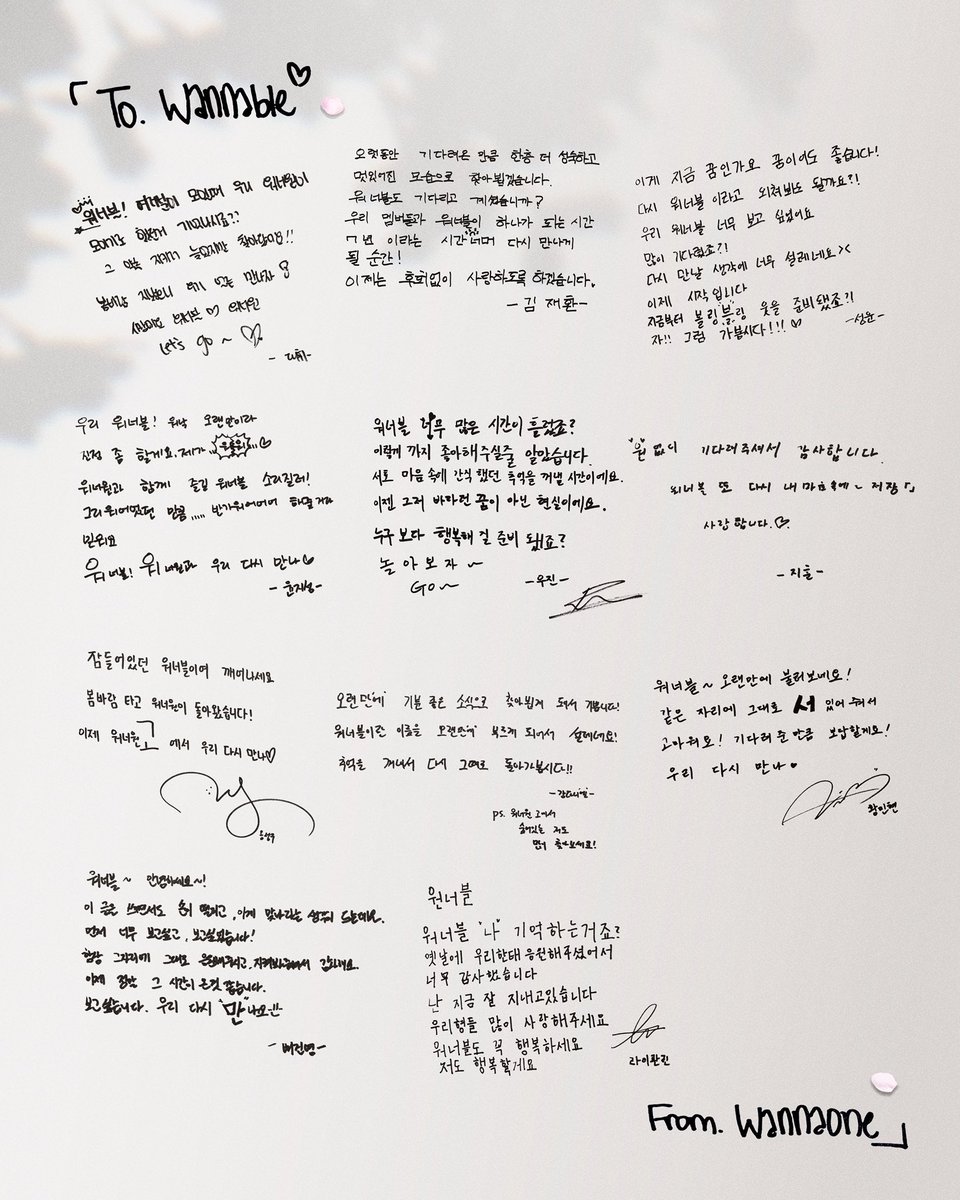 「To. Wannable♡
워너블!
Let's go ~ ♡
- 대휘-
오랫동안 기다려온 만큼 한층 더 성숙하고
멋있어진 모습으로 찾아뵙겠습니다.
워너블도 기다리고 계셨습니까?
우리 멤버들과 워너블이 하나가 되는 시간
7년 이라는 시간 너머 다시 만나게
될 순간!
이제는 후회없이 사랑하도록 하겠습니다.
- 김재환-
이게 지금 꿈인가요 꿈이어도 좋습니다!
다시 워너블 이라고 외쳐봐도 될까요?!
우리 워너블 너무 보고 싶었어요
많이 기다렸죠?!
다시 만날 생각에 너무 설레네요><
이제 시작 입니다
지금부터 볼링"블"링 웃을 준비됐죠?!
자!! 그럼 가봅시다!!!♡
-성운-
우리 워너블! 워낙 오랜만이라
진정 좀 할게요. 제가
워너원과 함께 즐길 워너블 소리질러!
그리워어었던 만큼,,,,, 반가워어어어 하실거라
믿워요
워너블! 워너원과 우리 다시 만나♡
- 윤지성-
워너블 너무 많은 시간이 흘렀죠?
이렇게 까지 좋아해주실줄 알았습니다.
서로 마음 속에 간직했던 추억을 꺼낼 시간이에요.
이젠 그리 바라던 꿈이 아닌 현실이에요.
누구 보다 행복해 질 준비 됐죠?
놀아보자~
GO~
-우진-
"원"없이 기다려주셔서 감사합니다.
워너블 또 다시 내 마음속에~ 저장「」
사랑합니다.♡
- 지훈 -
잠들어있던 워너블이여 깨어나세요
봄바람 타고 워너원이 돌아왔습니다!
이제 워너원고 에서 우리 다시 만나♡
옹성우
오랜만에 기분 좋은 소식으로 찾아뵙게 돼서 기쁩니다!
워너블이란 이름을 오랜만에 부르게 되어서 설레네요!
추억을 꺼내서 다시 그때로 돌아가봅시다!!
-강다니엘-
ps. 워너원 고에서
숨어있는 저도
먼저 찾아보세요!
워너블~ 오랜만에 불러보네요!
같은 자리에 그대로 서 있어 줘서
고마워요! 기다려 준 만큼 보답할게요!
우리 다시 만나♥
황민현
워너블~ 안녕하세요~!
이 글을 쓰면서도 손이 떨리고, 이게 맞나라는 생각이 드는데요.
먼저 너무 보고싶고, 보고싶었습니다!
항상 그자리에 그대로 응원해주시고, 지켜봐주셔서 감사해요.
이제 정말 그 시간이 온것 같습니다.
보고싶습니다. 우리 다시 "만"나요!!
- 배진영-
원너블
워너블 "나" 기억하는거죠?
옛날에 우리한태 응원해주셨어서
너무 감사했습니다
난 지금 잘 지내고있습니다
우리형들 많이 사랑해주세요
워너블도 꼭 행복하세요
저도 행복할게요
라이관린
From. Wannaone」